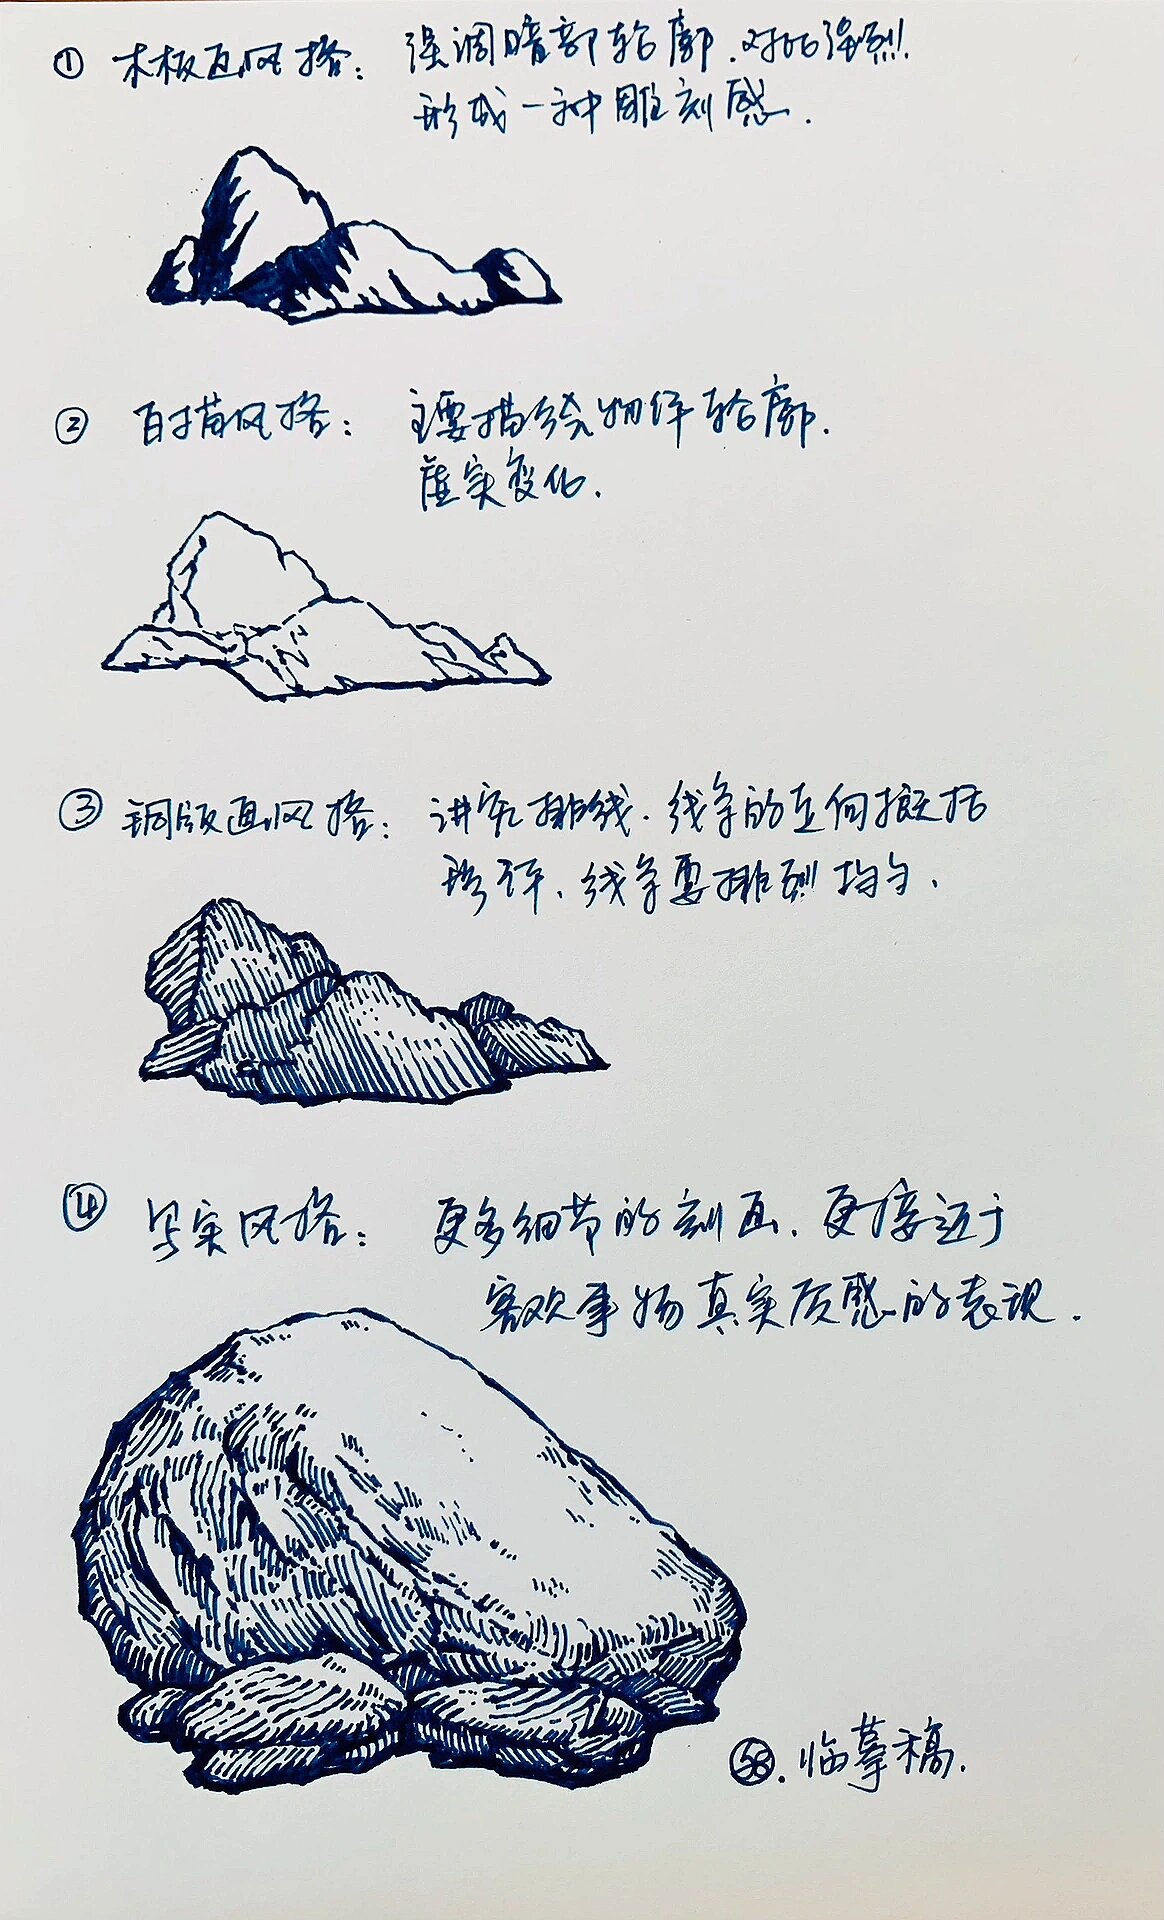 ① 木板画风格： 强调暗部轮廓.对比强烈
形成一种雕刻感.
② 白描风格： 主要描绘物体轮廓.
虚实变化.
③ 铜版画风格： 讲究排线.线条的立向概括
考评、线条要排列均匀.
④ 写实风格： 更多细节的刻画.更接近于
客观事物真实质感的表现.
58.临摹稿.